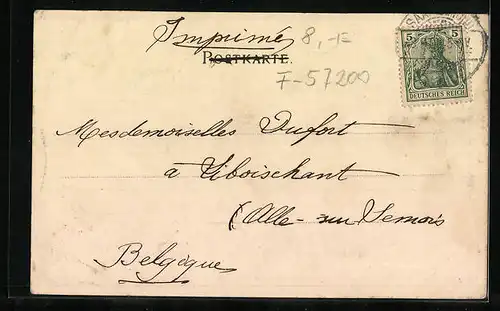 Imprimé 8,-F
POSTKARTE
F-57200
5 5
DEUTSCHES REICH
Mesdemoiselles Dufort
à Liboischant
(Alle-sur Semois
Belgique